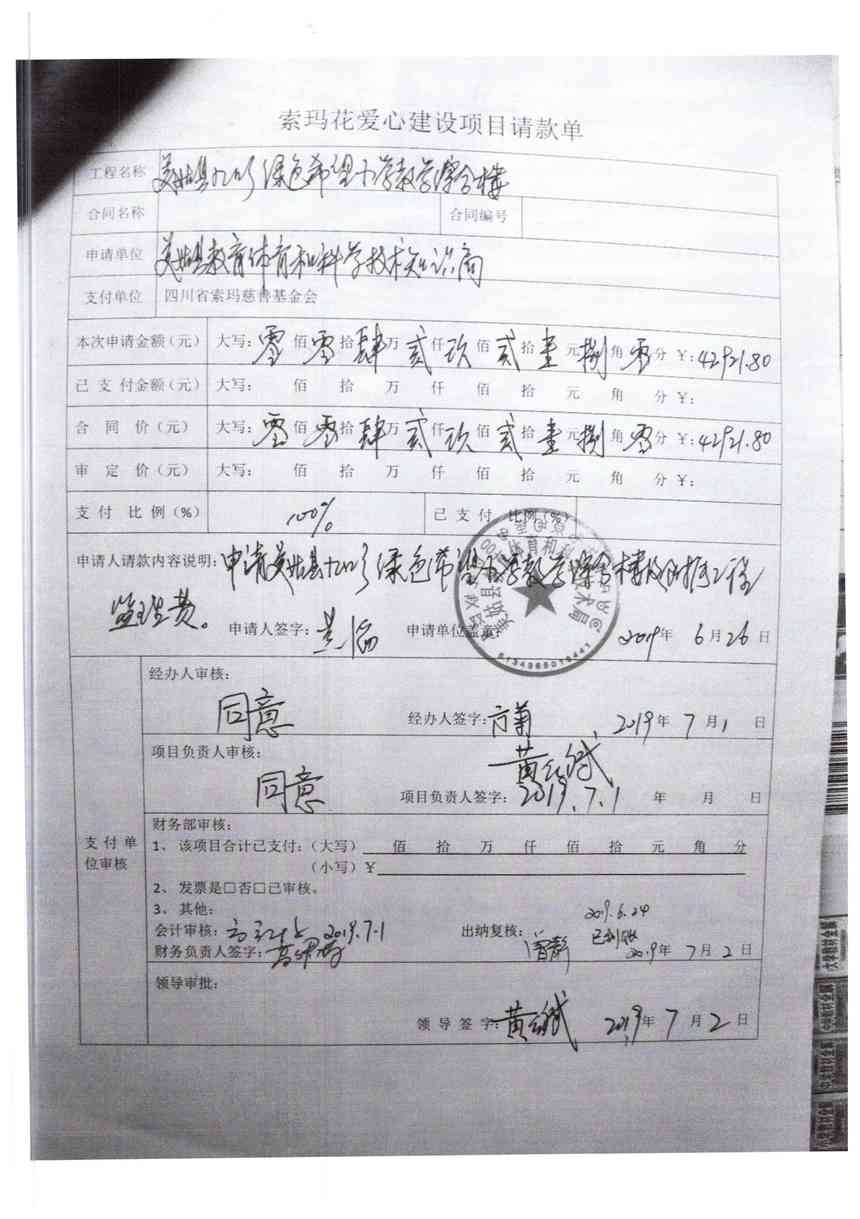 索玛花爱心建设项目请款单
工程名称 美姑县九口乡绿色希望小学教学综合楼
合同名称 合同编号
申请单位 美姑县教育体育和科学技术知识局
支付单位 四川省索玛慈善基金会
本次申请金额（元） 大写：零佰零拾肆万贰仟玖佰贰拾壹元捌角零分 ￥：42921.80
已支付金额（元） 大写： 佰 拾 万 仟 佰 拾 元 角 分 ￥：
合同价（元） 大写：零佰零拾肆万贰仟玖佰贰拾壹元捌角零分 ￥：42921.80
审定价（元） 大写： 佰 拾 万 仟 佰 拾 元 角 分 ￥：
支付比例（%） 100% 已支付比例（%）
申请人请款内容说明：申请美姑县九口乡绿色希望小学教学综合楼及附属工程
监理费。 申请人签字： 申请单位盖章： 2019年6月26日
经办人审核：
同意 经办人签字：方菊 2019年7月1日
项目负责人审核：
同意 项目负责人签字：黄红斌 2019.7.1 年 月 日
支付单位审核
财务部审核：
1、该项目合计已支付：（大写） 佰 拾 万 仟 佰 拾 元 角 分
（小写）￥
2、发票是□否□已审核。
3、其他：
2019.6.24
会计审核： 2019.7.1 出纳复核：潘静
财务负责人签字： 2019年7月2日
领导审批：
领导签字：黄红斌 2019年7月2日